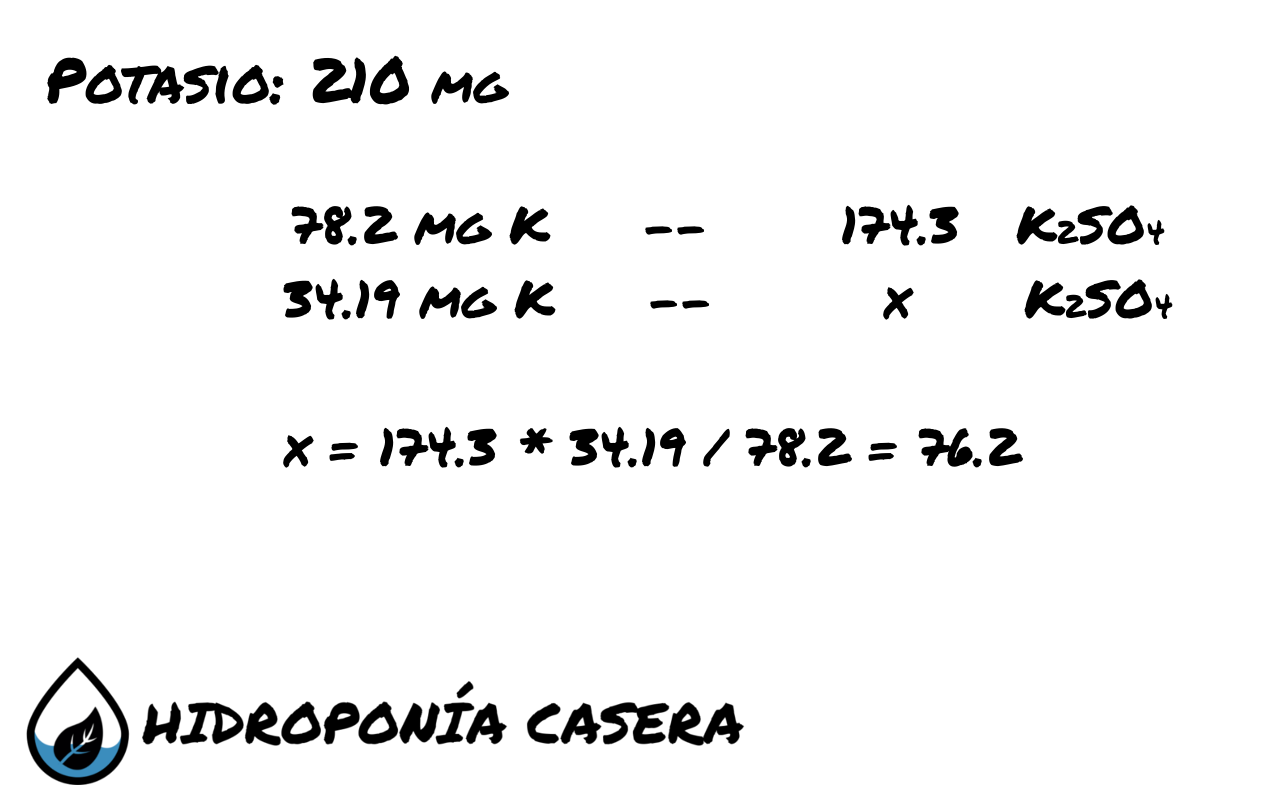 Potasio: 210 mg
78.2 mg K -- 174.3 K2SO4
34.19 mg K -- x K2SO4
x = 174.3 * 34.19 / 78.2 = 76.2
HIDROPONÍA CASERA